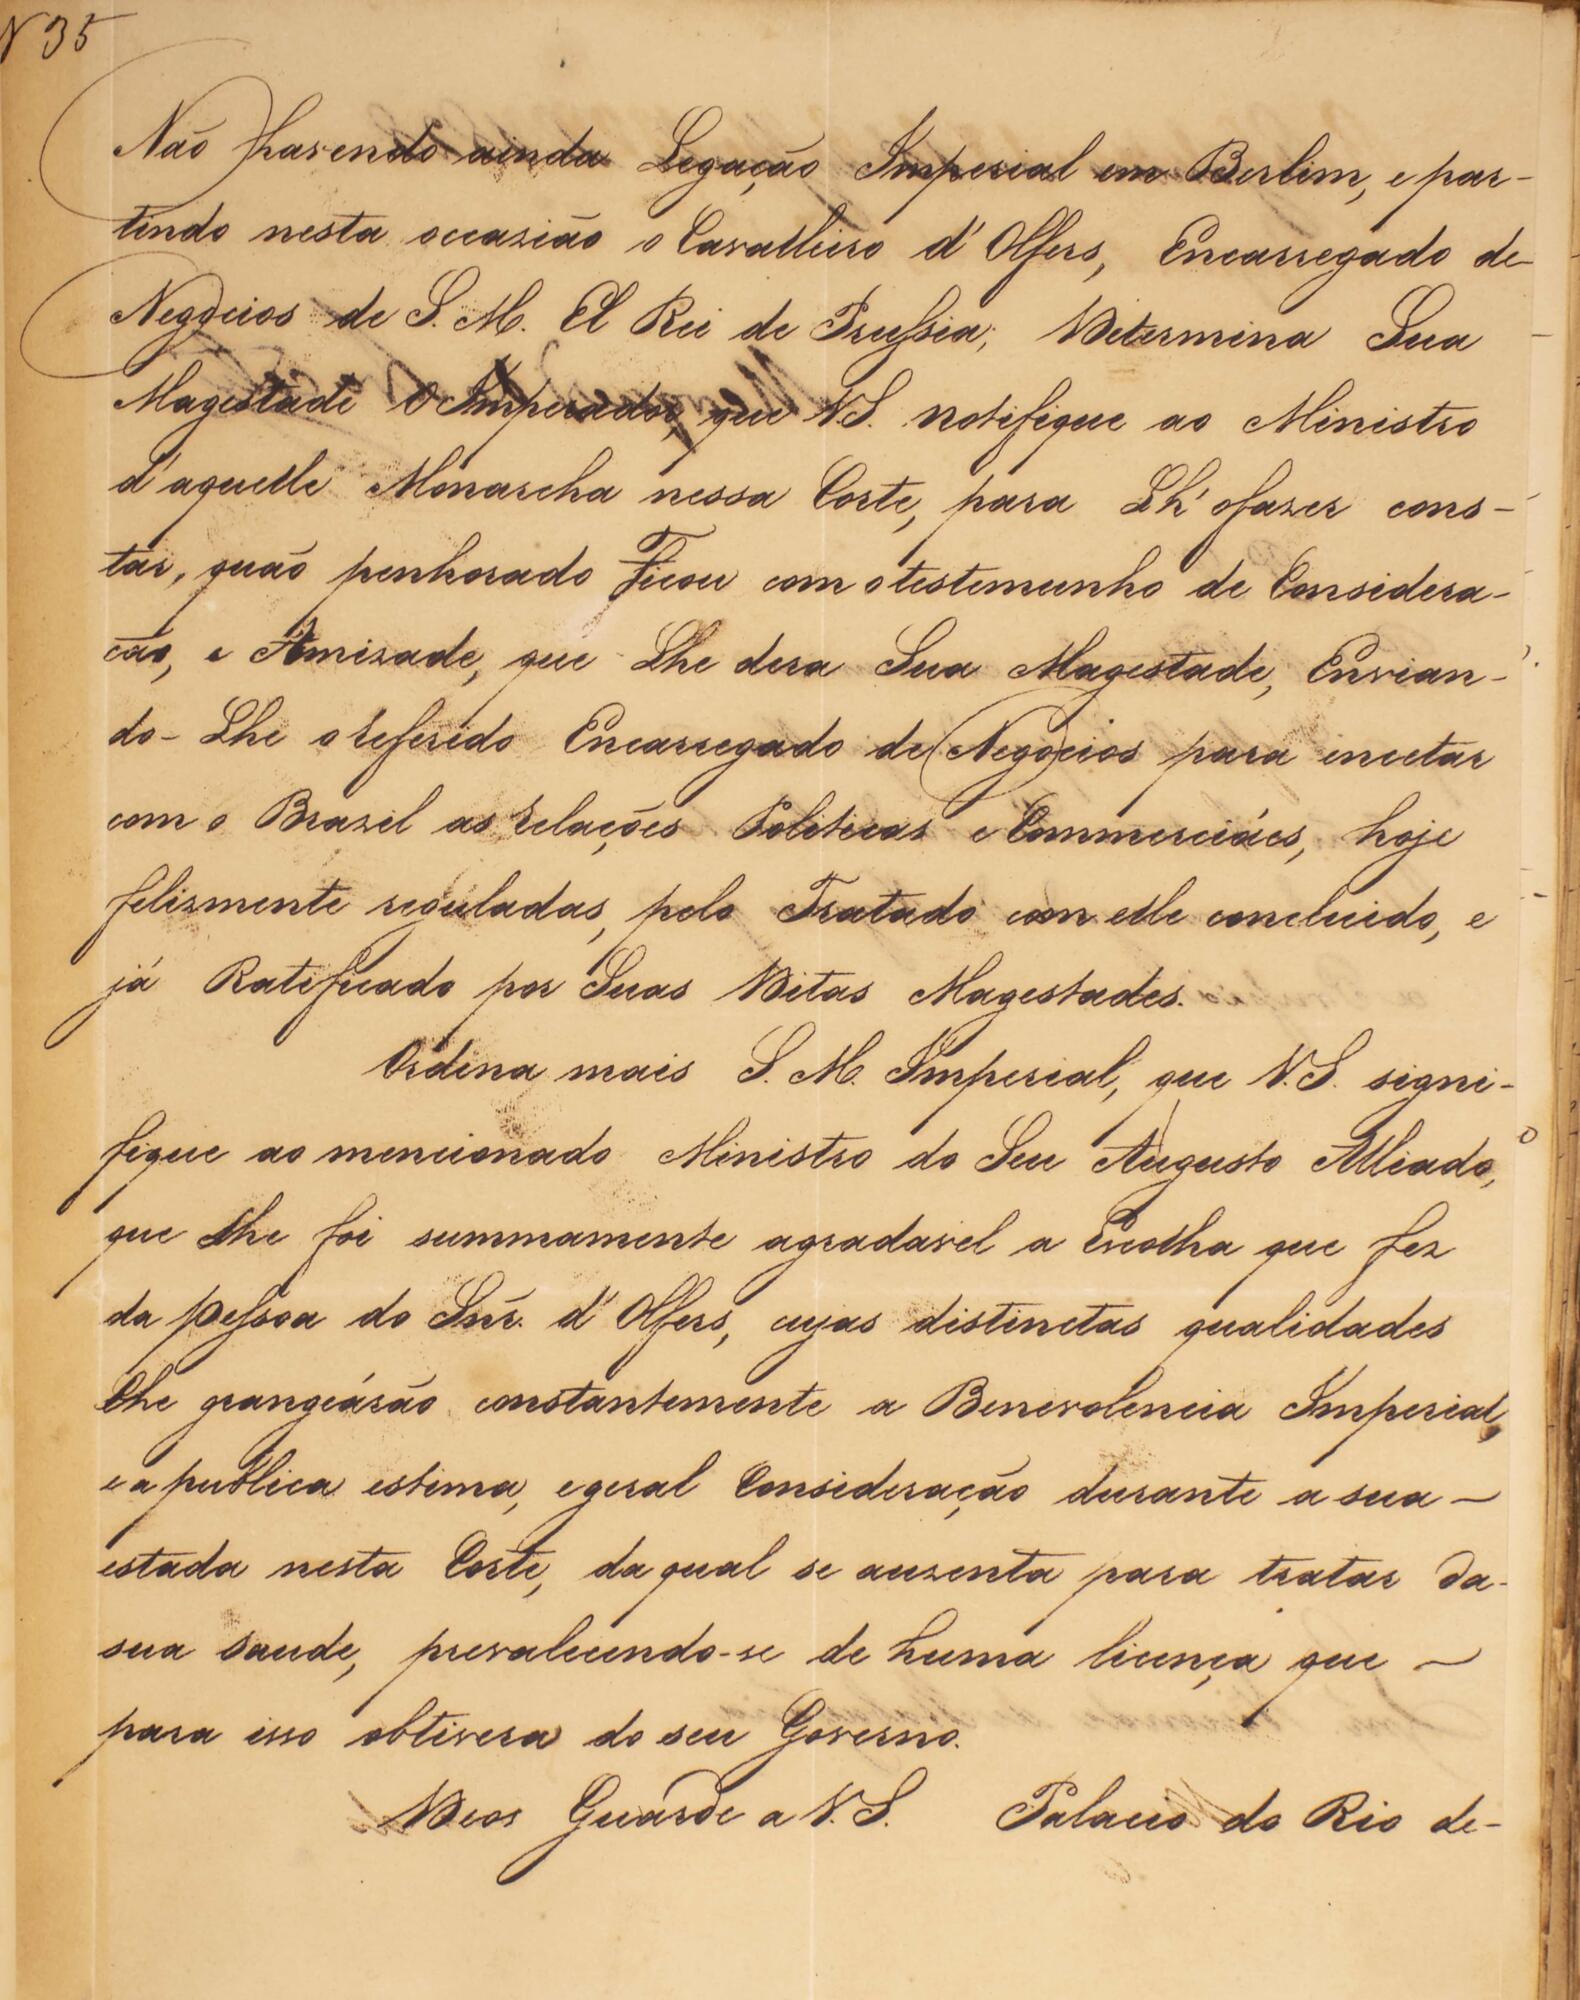 N 35
Não havendo ainda Legação Imperial em Berlim, e par-
tindo nesta occazião o Cavalleiro d'Olfers, Encarregado de
Negocios de S. M. El Rei de Prussia; Determina Sua
Magestade O Imperador, que V.S. notifique ao Ministro
d'aquelle Monarcha nessa Corte, para Lh'o fazer cons-
tar, quão penhorado Ficou com o testemunho de Considera-
ção, e Amizade, que Lhe dera Sua Magestade, Envian-
do-Lhe o referido Encarregado de Negocios para encetar
com o Brazil as relações Politicas e Commerciáes, hoje
felizmente reguladas, pelo Tratado com elle concluido, e
já Ratificado por Suas Ditas Magestades.
Ordena mais S. M. Imperial, que V.S. signi-
fique ao mencionado Ministro do Seu Augusto Alliado,
que Lhe foi summamente agradavel a Escolha que fez
da pessoa do Snr. d'Olfers, cujas distinctas qualidades
lhe grangeárão constantemente a Benevolencia Imperial,
e a publica estima, e geral Consideração durante a sua
estada nesta Corte, da qual se auzenta para tratar da
sua saude, prevalecendo-se de huma licença que
para isso obtivera do seu Governo.
Deos Guarde a V.S. Palacio do Rio de-